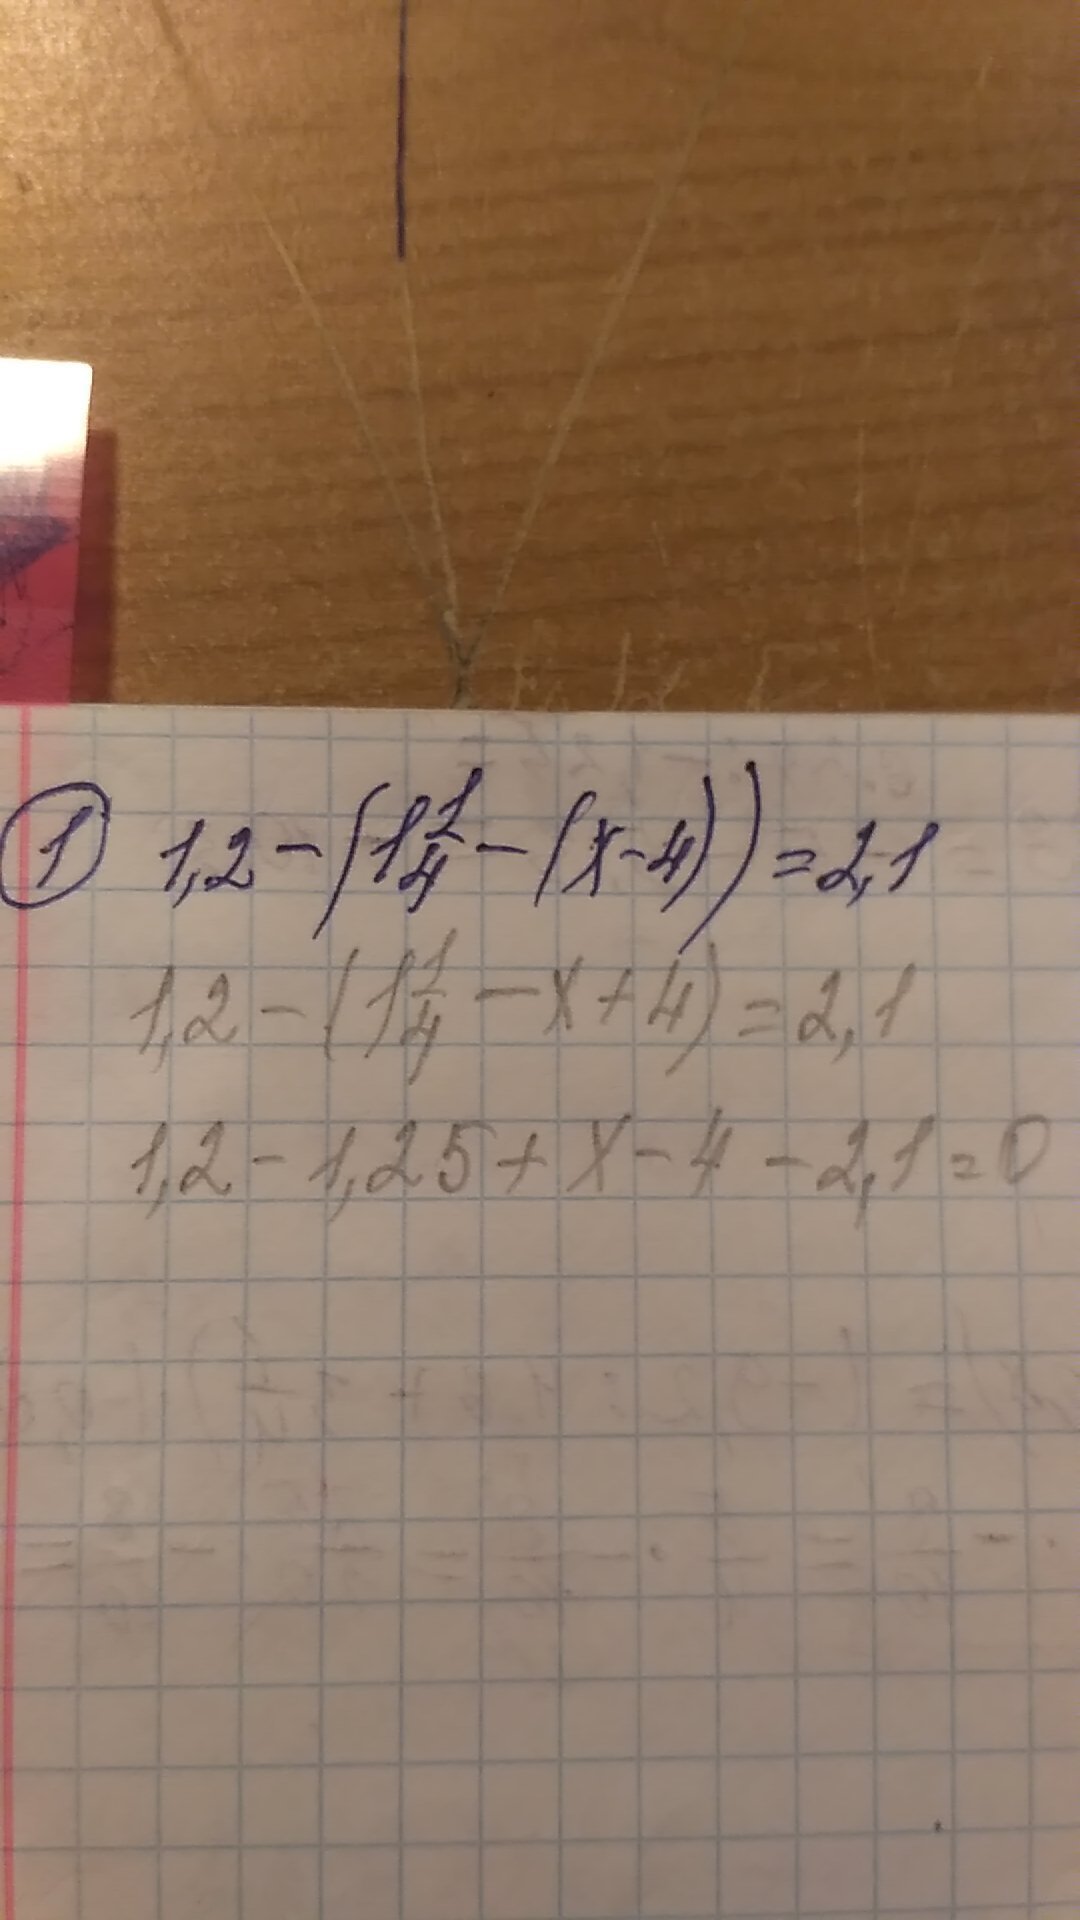 ① 1,2 - (1 1/4 - (x - 4)) = 2,1
1,2 - (1 1/4 - x + 4) = 2,1
1,2 - 1,25 + x - 4 - 2,1 = 0